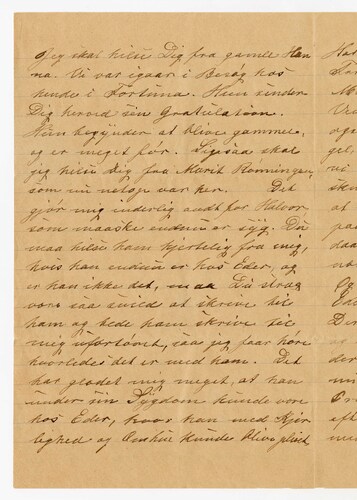 Jeg skal hilse Dig fra gamle Han
na. Vi var igaar i Besøg hos
hende i Fortuna. Hun sender
Dig herved sin Gratulation.
Hun begynder at blive gammel,
og er meget før. Ligesaa skal
jeg hilse Dig fra Marit Rønningen,
som nu netop var her. Det
gjør mig inderlig ondt for Halvor
som maaske endnu er syg. Du
maa hilse ham hjertelig fra meg,
hvis han endnu er hos Eder, og
er han ikke det, maa Du strax
være saa snild at skrive til
ham og bede ham skrive til
mig ufortøvet, saa jeg faar høre
hvorledes det er med ham. Det
har glædet mig meget, at han
under sin Sygdom kunde være
hos Eder, hvor han med Kjær
lighed og Omhu kunde blive pleiet